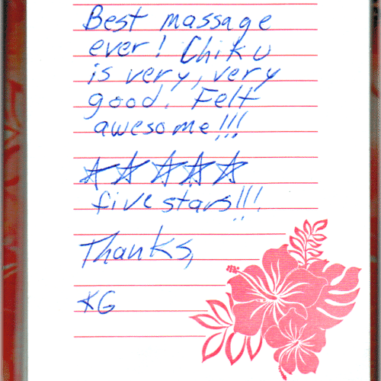 Best massage
ever! Chiku
is very, very
good. Felt
awesome!!!
☆☆☆☆☆
five stars!!!
Thanks,
KG